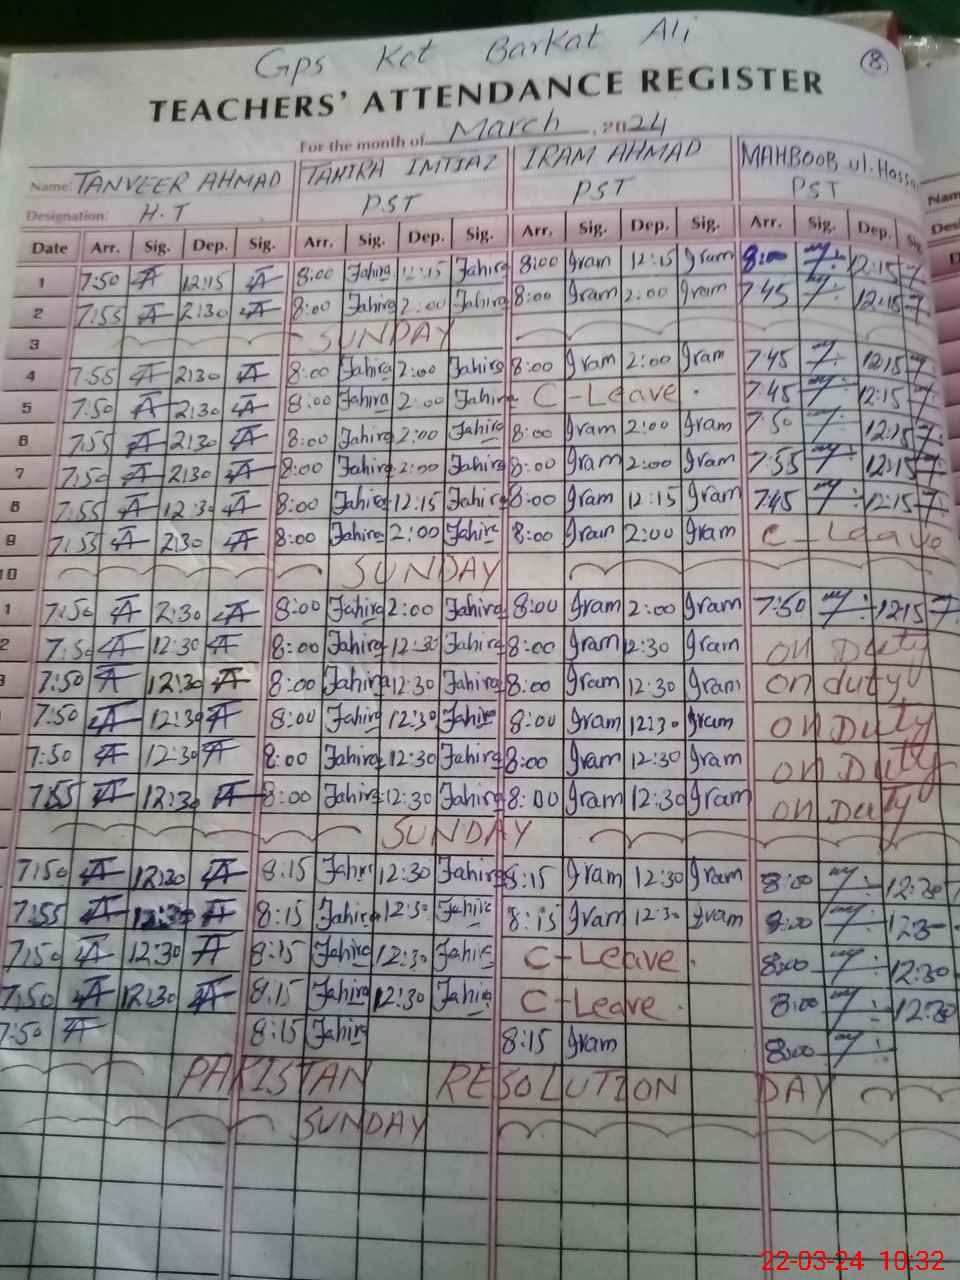 Gps Kot Barkat Ali
8
TEACHERS' ATTENDANCE REGISTER
For the month of March, 2024
Name: TANVEER AHMAD TAHIRA IMTIAZ IRAM AHMAD MAHBOOB ul.Hassa
Designation: H.T PST PST PST
Date Arr. Sig. Dep. Sig. Arr. Sig. Dep. Sig. Arr. Sig. Dep. Sig. Arr. Sig. Dep. Sig
1 7:50 12:15 8:00 Tahira 12:15 Tahira 8:00 Iram 12:15 Iram 8:00 12:15
2 7:55 2:30 8:00 Tahira 2:00 Tahira 8:00 Iram 2:00 Iram 7:45 12:15
3 SUNDAY
4 7:55 2:30 8:00 Tahira 2:00 Tahira 8:00 Iram 2:00 Iram 7:45 12:15
5 7:50 2:30 8:00 Tahira 2:00 Tahira C-Leave. 7:45 12:15
6 7:55 2:30 8:00 Tahira 2:00 Tahira 8:00 Iram 2:00 Iram 7:50 12:15
7 7:50 2:30 8:00 Tahira 2:00 Tahira 8:00 Iram 2:00 Iram 7:55 12:15
8 7:55 12:30 8:00 Tahira 12:15 Tahira 8:00 Iram 12:15 Iram 7:45 12:15
9 7:55 2:30 8:00 Tahira 2:00 Tahira 8:00 Iram 2:00 Iram C-Leave
10 SUNDAY
1 7:50 2:30 8:00 Tahira 2:00 Tahira 8:00 Iram 2:00 Iram 7:50 12:15
2 7:50 12:30 8:00 Tahira 12:30 Tahira 8:00 Iram 12:30 Iram on Duty
3 7:50 12:30 8:00 Tahira 12:30 Tahira 8:00 Iram 12:30 Iram on duty
7:50 12:30 8:00 Tahira 12:30 Tahira 8:00 Iram 12:30 Iram on Duty
7:50 12:30 8:00 Tahira 12:30 Tahira 8:00 Iram 12:30 Iram on Duty
7:55 12:30 8:00 Tahira 12:30 Tahira 8:00 Iram 12:30 Iram on Duty
SUNDAY
7:50 12:30 8:15 Tahira 12:30 Tahira 8:15 Iram 12:30 Iram 8:00 12:30
7:55 12:30 8:15 Tahira 12:30 Tahira 8:15 Iram 12:30 Iram 8:00 12:30
7:50 12:30 8:15 Tahira 12:30 Tahira C-Leave. 8:00 12:30
7:50 12:30 8:15 Tahira 12:30 Tahira C-Leave. 8:00 12:30
7:50 8:15 Tahira 8:15 Iram 8:00
PAKISTAN RESOLUTION DAY
SUNDAY
22-03-24 10:32